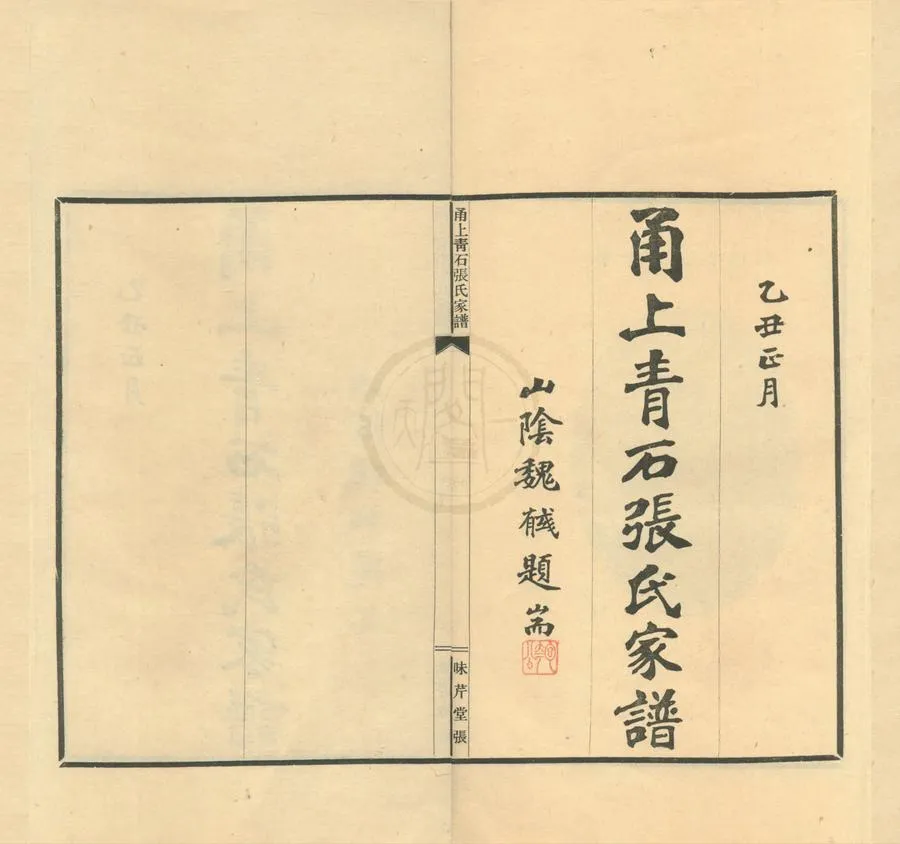 乙丑正月
甬上青石張氏家譜
山陰魏戫題耑
甬上靑石張氏家譜
味芹堂張